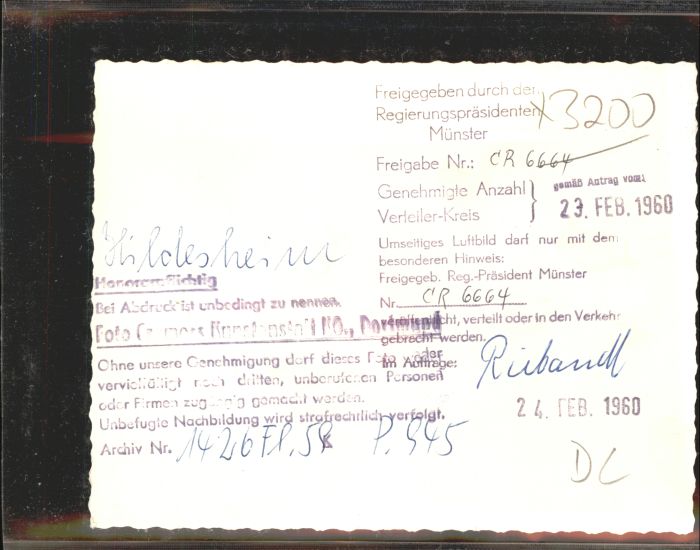 Freigegeben durch den
Regierungspräsidenten
Münster
x3200
Freigabe Nr.: CR 6664
Genehmigte Anzahl }
Verteiler-Kreis
gemäß Antrag vom:
23. FEB. 1960
Umseitiges Luftbild darf nur mit dem
besonderen Hinweis:
Freigegeb. Reg.-Präsident Münster
Nr. CR 6664
veröffentlicht, verteilt oder in den Verkehr
gebracht werden.
Im Auftrage:
24. FEB. 1960
DC
Hildesheim
Honorarpflichtig
Bei Abdruck ist unbedingt zu nennen.
Foto Kunstanstalt KG., Dortmund
Ohne unsere Genehmigung darf dieses Foto weder
vervielfältigt noch dritten, unberufenen Personen
oder Firmen zugängig gemacht werden.
Unbefugte Nachbildung wird strafrechtlich verfolgt.
Archiv Nr. 1426 Fl. 58 P. 945